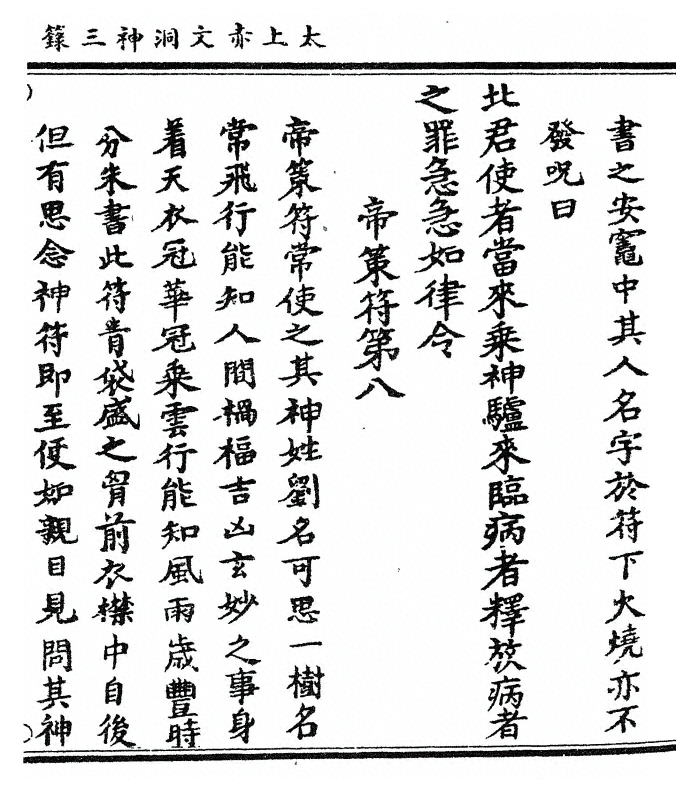 太上赤文洞神三籙
書之安竈中其人名字於符下火燒亦不
發呪曰
北君使者當來乘神驢來臨病者釋放病者
之罪急急如律令
帝策符第八
帝策符常使之其神姓劉名可思一樹名
常飛行能知人間禍福吉凶玄妙之事身
着天衣冠華冠乘雲行能知風雨歲豐時
分朱書此符青袋盛之胷前衣襟中自後
但有思念神符即至便如親目見問其神